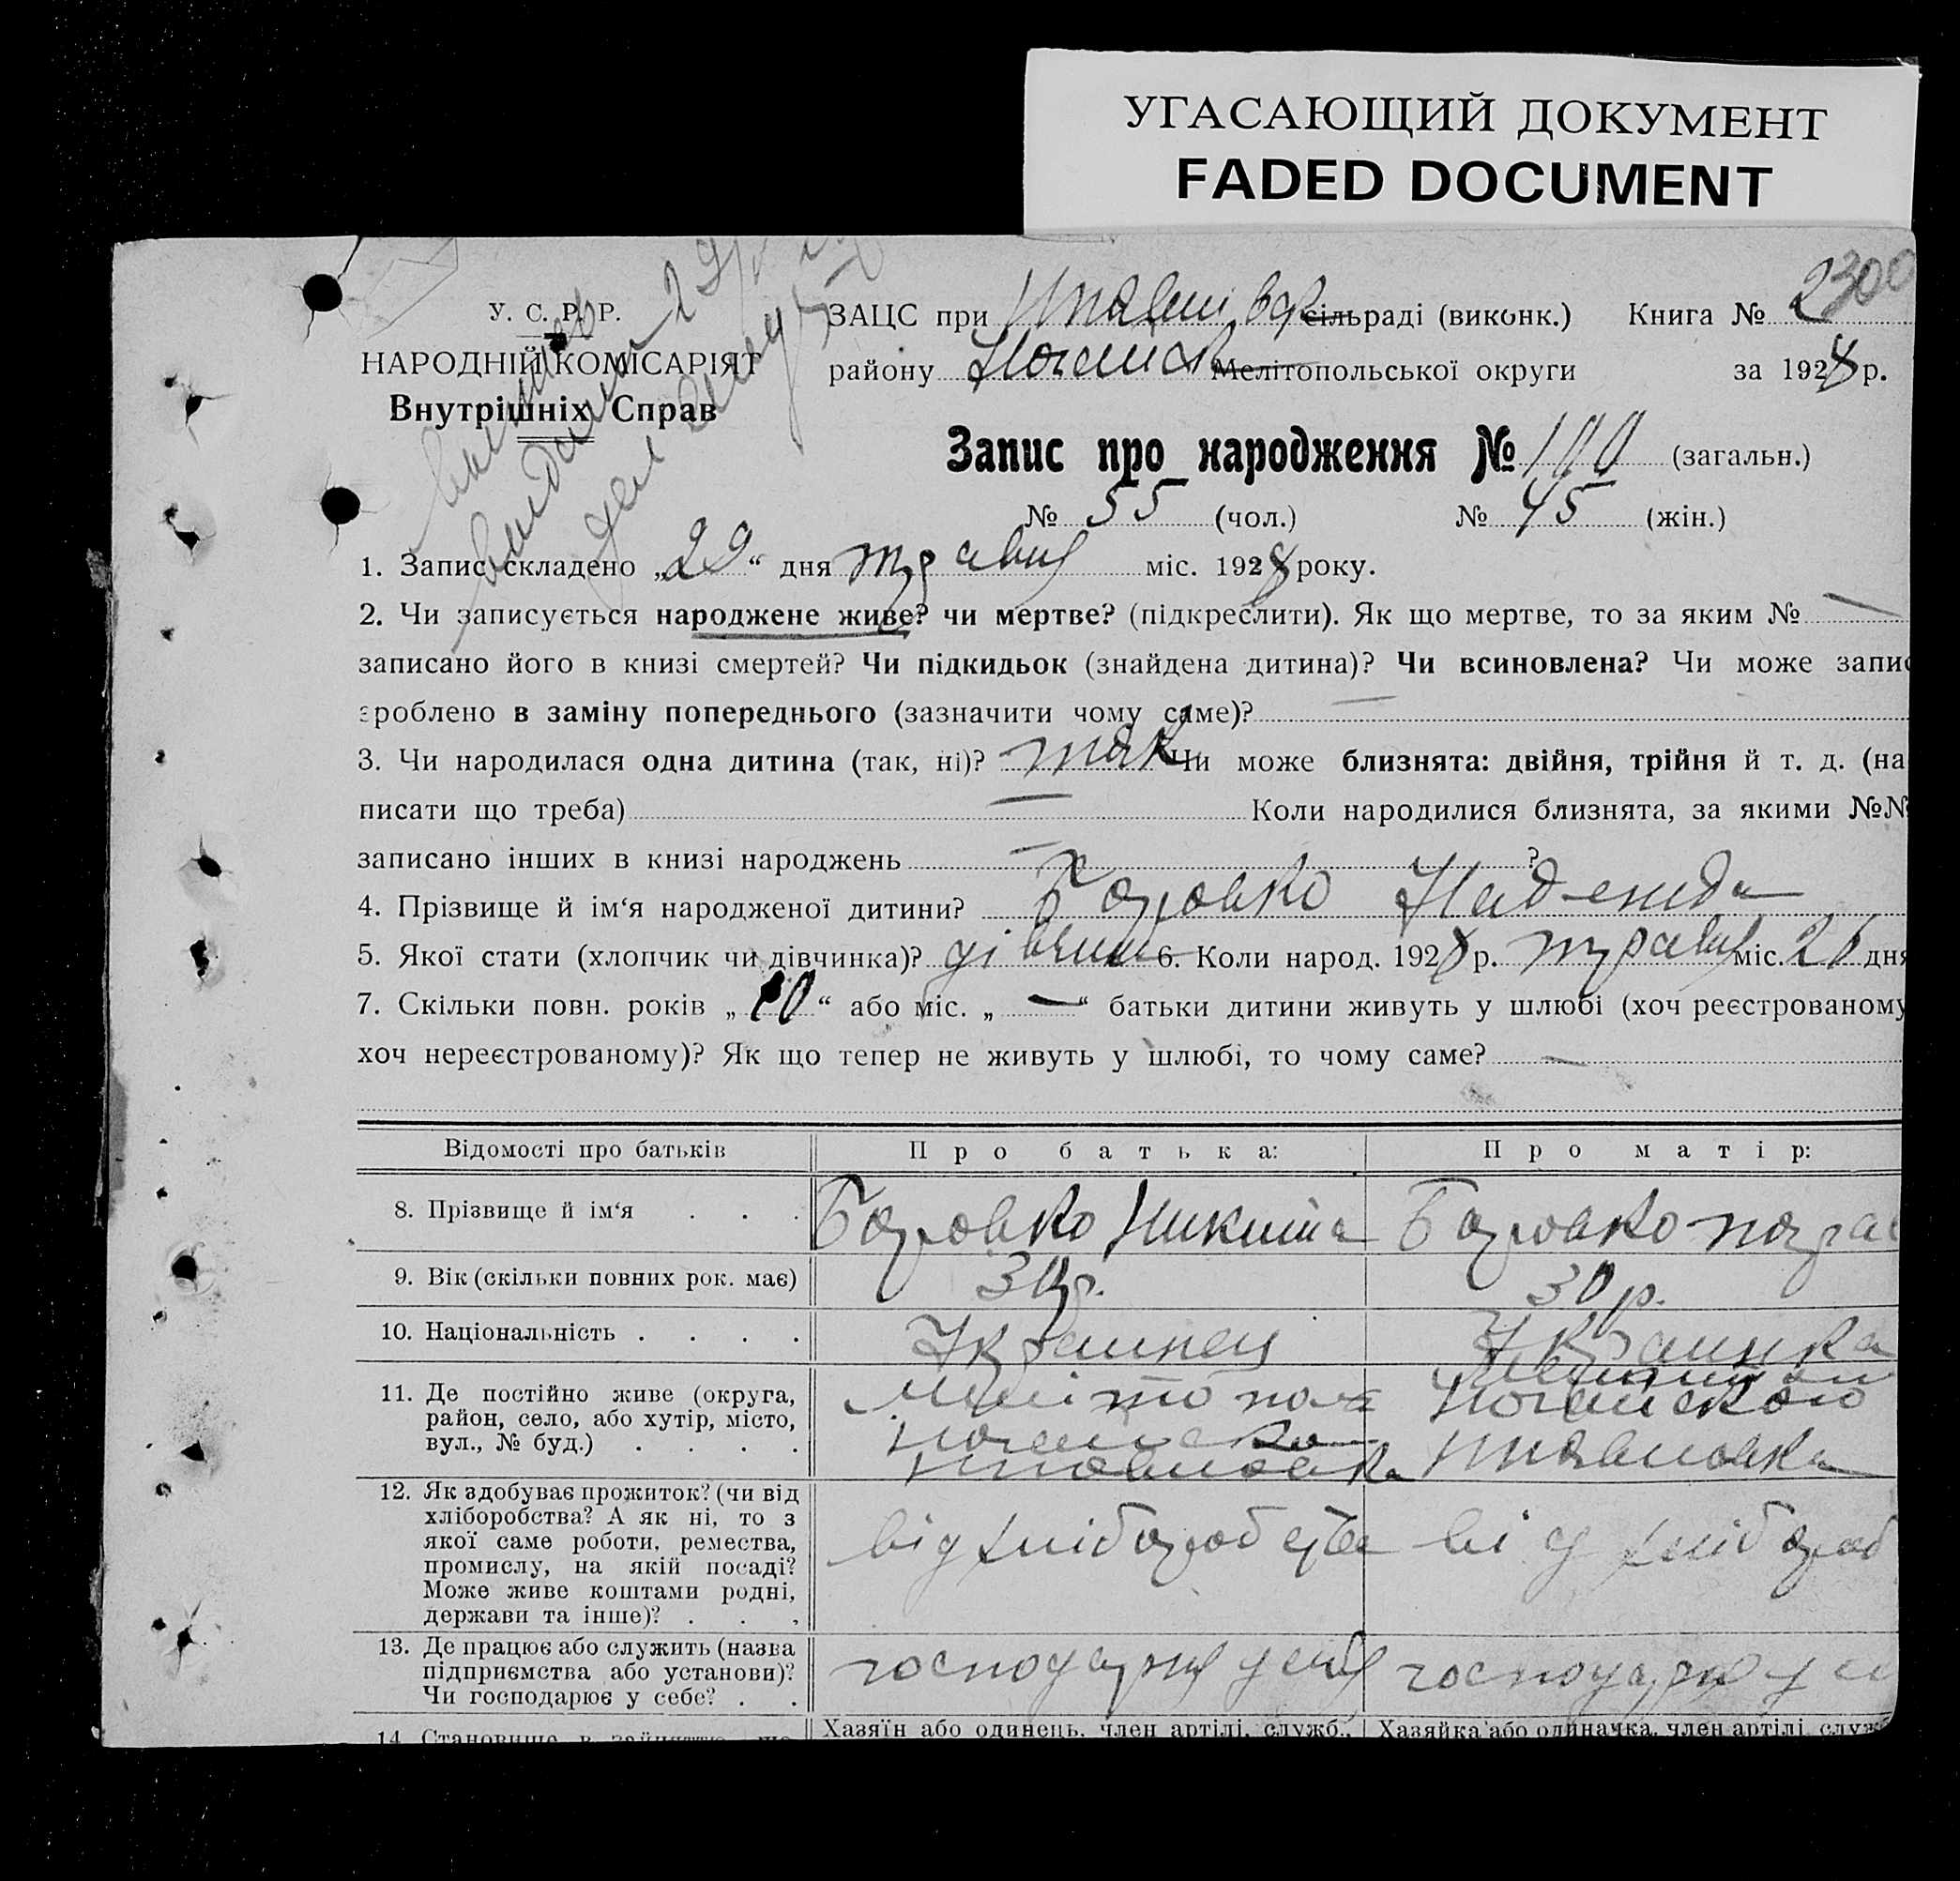 УГАСАЮЩИЙ ДОКУМЕНТ
FADED DOCUMENT
У. С. Р. Р.
НАРОДНІЙ КОМІСАРІЯТ
Внутрішніх Справ
ЗАЦС при сільраді (виконк.) Книга № 2300
району Ногайськ Мелітопольської округи за 1928 р.
Запис про народження № 100 (загальн.)
№ 55 (чол.) № 45 (жін.)
1. Запис складено „29“ дня травня міс. 1928 року.
2. Чи записується народжене живе? чи мертве? (підкреслити). Як що мертве, то за яким № —
записано його в книзі смертей? Чи підкидьок (знайдена дитина)? Чи всиновлена? Чи може запис
зроблено в заміну попереднього (зазначити чому саме)? —
3. Чи народилася одна дитина (так, ні)? так Чи може близнята: двійня, трійня й т. д. (на
писати що треба) — Коли народилися близнята, за якими №№
записано інших в книзі народжень — ?
4. Прізвище й ім‘я народженої дитини? Боровко Надежда
5. Якої стати (хлопчик чи дівчинка)? дівчин 6. Коли народ. 1928 р. травня міс. 26 дня
7. Скільки повн. років „10“ або міс. „—“ батьки дитини живуть у шлюбі (хоч реєстрованому
хоч нереєстрованому)? Як що тепер не живуть у шлюбі, то чому саме? —
Відомості про батьків Про батька: Про матір:
8. Прізвище й ім‘я . . . Боровко Никита Боровко
9. Вік (скільки повних рок. має) 30 р. 30 р.
10. Національність . . . . Украинец Украинка
11. Де постійно живе (округа,
район, село, або хутір, місто,
вул., № буд.) . . . .
Мелітопол
Ногайского
12. Як здобуває прожиток? (чи від
хліборобства? А як ні, то з
якої саме роботи, ремества,
промислу, на якій посаді?
Може живе коштами родні,
держави та інше)? . . .
від хліборобства від хлібороб
13. Де працює або служить (назва
підприємства або установи)?
Чи господарює у себе? . .
господарює у себе господарює у се
14. Становище в
Хазяїн або одинець, член артілі, служб., Хазяйка або одиначка, член артілі служб